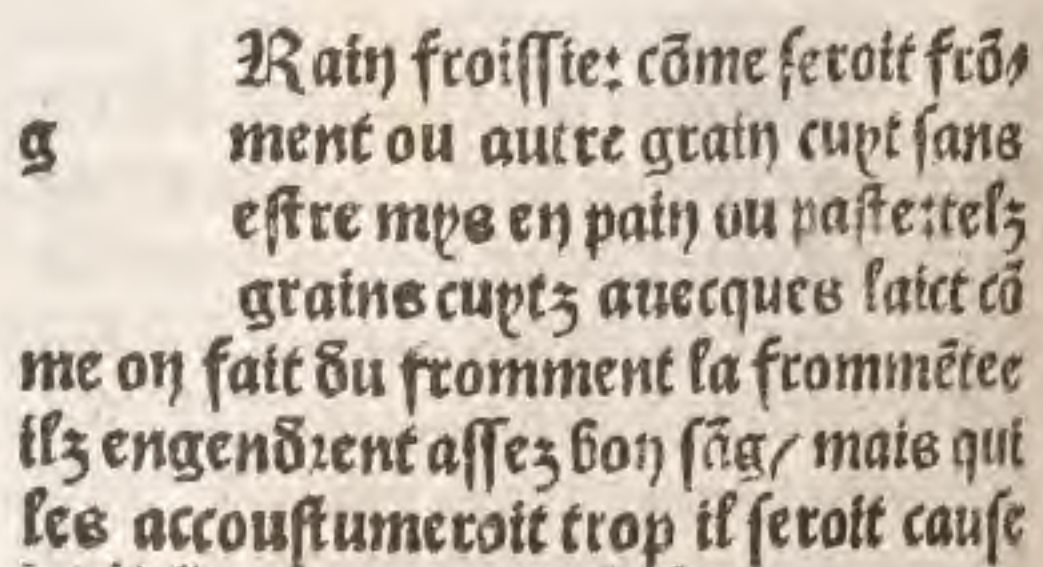 Rain froissie: cõme seroit frõ⸗
g
ment ou autre grain cuyt sans
estre mys en pain ou paste: telz
grains cuytz auecques laict cõ
me on fait du fromment la frommẽtee
ilz engendrent assez bon sãg/ mais qui
les accoustumeroit trop il seroit cause